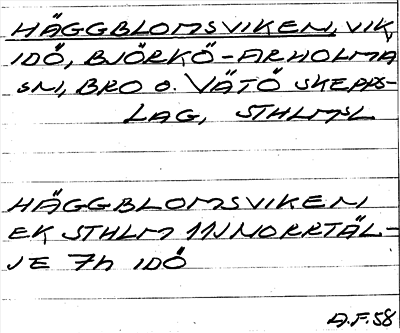 HÄGGBLOMSVIKEN, VIK,
IDÖ, BJÖRKÖ-ARHOLMA
SN, BRO O. VÄTÖ SKEPPS-
LAG, STHLMSL
HÄGGBLOMSVIKEN
EK STHLM 11J NORRTÄL-
JE 7h IDÖ
A.F.58